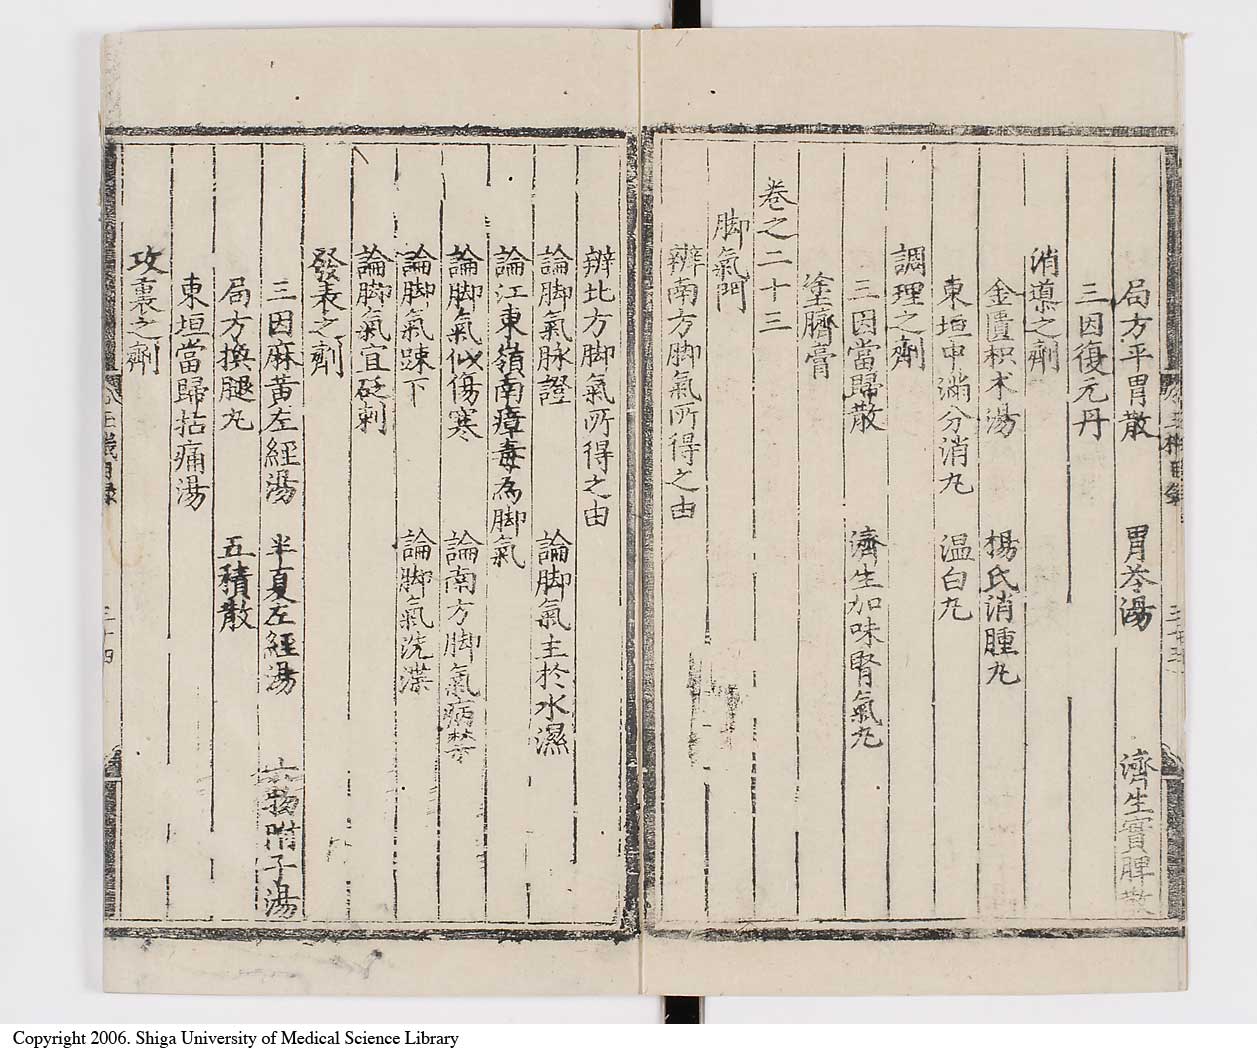 局方平胃散 胃苓湯 濟生實脾散
三因復元丹
消導之劑
金匱枳朮湯 楊氏消腫丸
東垣中滿分消丸 温白丸
調理之劑
三因當歸散 濟生加味腎氣丸
塗臍膏
卷之二十三
脚氣門
辨南方脚氣所得之由
辨北方脚氣所得之由
論脚氣脉證 論脚氣主於水濕
論江東嶺南瘴毒為脚氣
論脚氣似傷寒 論南方脚氣病
論脚氣踈下 論脚氣洗渫
論脚氣宜砭刺
發表之劑
三因麻黄左經湯 半夏左經湯 六物附子湯
局方換腿丸 五積散
東垣當歸拈痛湯
攻裏之劑
Copyright 2006. Shiga University of Medical Science Library